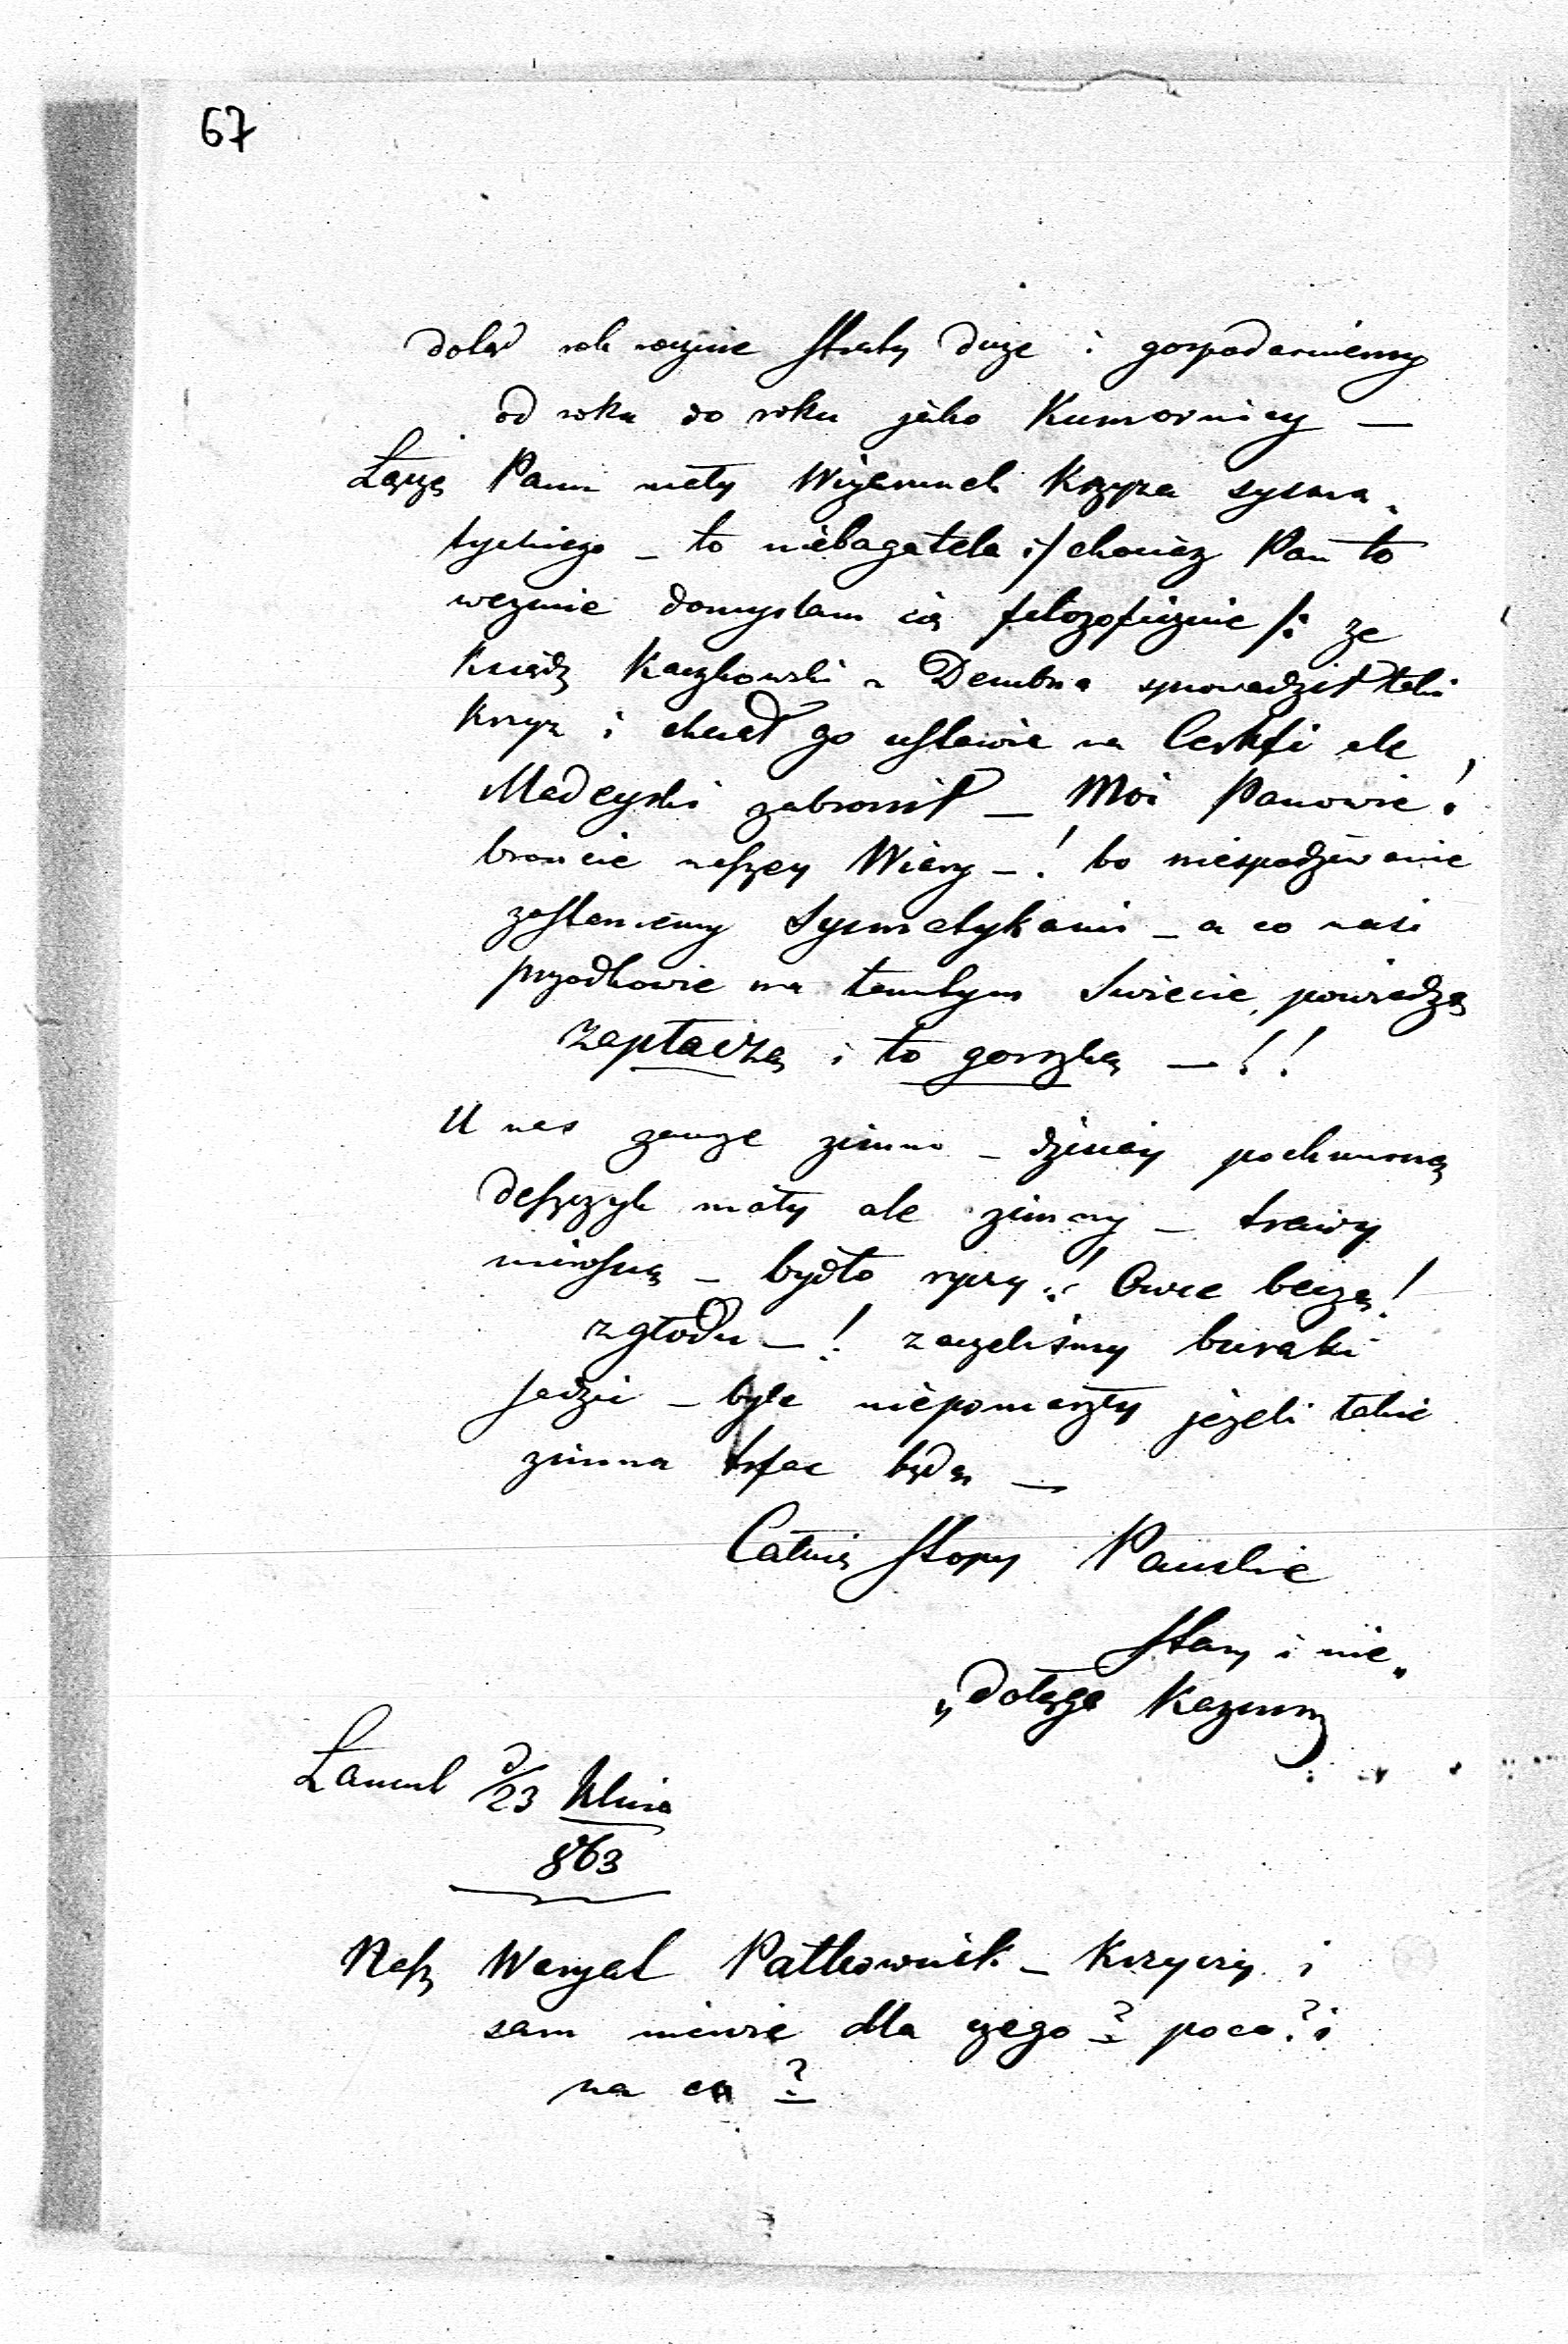 67
dotąd rok rocznie straty duże i gospodarujemy
od roku do roku jako Kumornicy —
Łączę Panu mały Wizerunek Krzyża syzma„
tyckiego – to niebagatela :/ chociaż Pan to
wezmie domyslam się filozoficznie /: ze
Ksiądz Kaczkowski z Dembna sprowadził taki
Krzyz i chciał go ustawic na Cerkfi ale
Madeyski zabronił — Moi Panowie!
broncie naszey Wiary –! bo niespodziewanie
zostaniemy Syzmatykami – a co nasi
przodkowie na tamtym Swiecie, powiedzą
zapłaczą i to gorzką —!!
U nas zawze zimno – dzisiay pochmurno
deszczyk mały ale zimny – trawy
nierosną – bydło ryczy! Owce beczą!
z głodu –! zaczeliśmy buraki
sadzic – byle niepomarzły jeżeli takie
zimna trfac będą —
Całuię Stopy Panskie
Stary i nie„
„dołęga Kazimirz
Łancut d/23 Kwie
863
Nasz Patkownik – Krzyczy i
sam niewie dla czego? poco? i
na co?